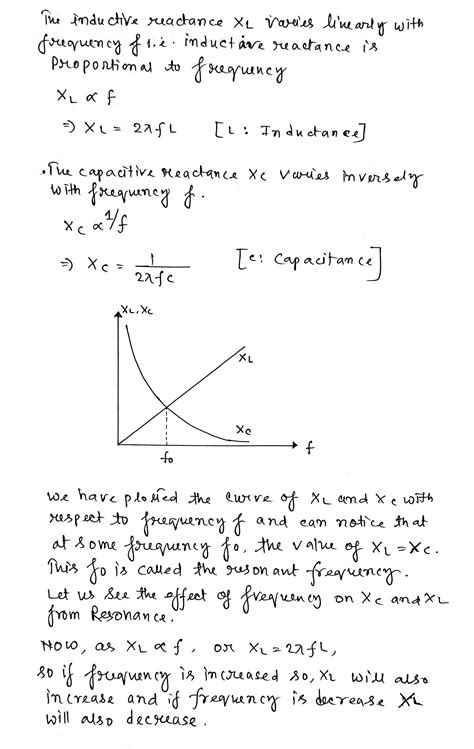 The inductive reactance XL varies linearly with
frequency f i.e. inductive reactance is
Proportional to frequency
XL ∝ f
⇒ XL = 2πfL [L: Inductance]
.The capacitive reactance Xc varies inversely
with frequency f.
Xc ∝ 1/f
⇒ Xc = 1/2πfc [c: Capacitance]
XL, Xc
XL
Xc
f
fo
We have plotted the curve of XL and Xc with
respect to frequency f and can notice that
at some frequency fo, the value of XL = Xc.
This fo is called the resonant frequency.
Let us see the effect of frequency on Xc and XL
from Resonance.
Now, as XL ∝ f, or XL = 2πfL,
so if frequency is increased so, XL will also
increase and if frequency is decrease XL
will also decrease.